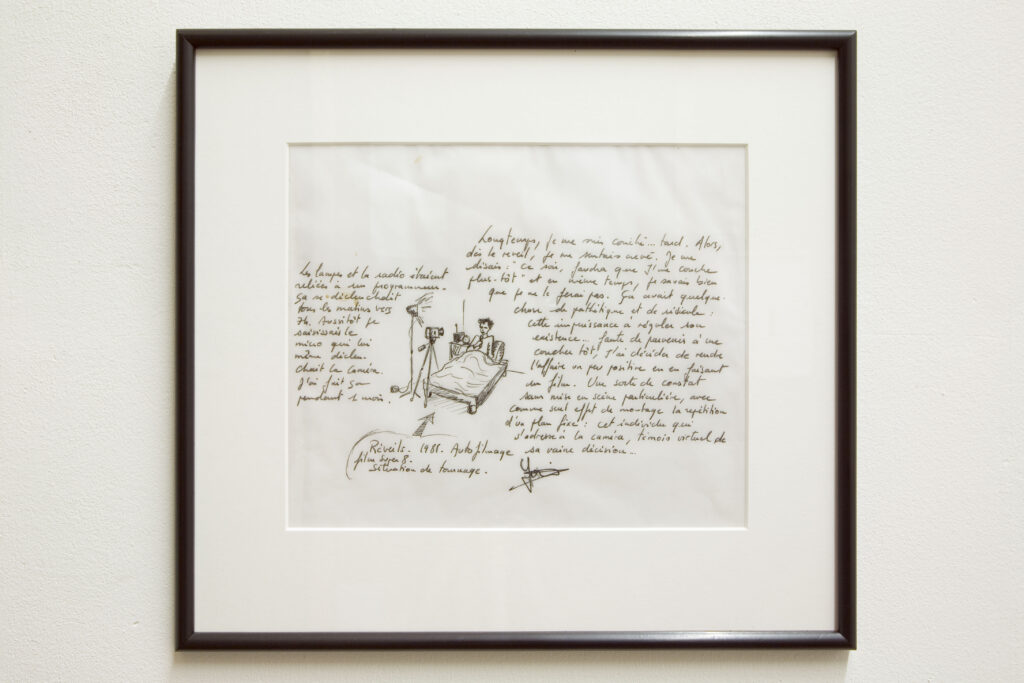 Longtemps, je me suis couché... tard. Alors,
dès le réveil, je me sentais crevé. Je me
disais : "ce soir, faudra que j'me couche
plus tôt" et en même temps, je savais bien
que je ne le ferai pas. Ça avait quelque
chose de pathétique et de ridicule :
cette impuissance à réguler son
existence... faute de parvenir à me
coucher tôt, j'ai décider de rendre
l'affaire un peu positive en en faisant
un film. Une sorte de constat
sans mise en scène particulière, avec
comme seul effet de montage la répétition
d'un plan fixe : cet individu qui
s'adresse à la caméra, témoin virtuel de
sa vaine décision...
Les lampes et la radio étaient
reliées à un programmeur.
Ça se déclenchait
tous les matins vers
7h. Aussitôt je
saisissais le
micro qui lui
même déclen-
chait la caméra.
J'ai fait ça
pendant 1 mois.
Réveils. 1988. Autofilmage
film super 8.
Situation de tournage.